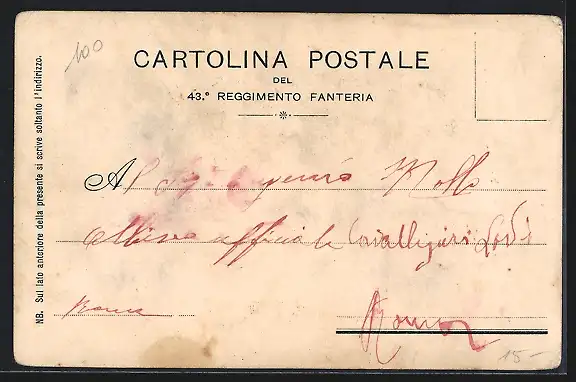 100
CARTOLINA POSTALE
DEL
43.° REGGIMENTO FANTERIA
NB. Sul lato anteriore della presente si scrive soltanto l'indirizzo.
Al Sig. Eugenio Mollo
Allievo ufficiale Cavalleggeri Lodi
Roma
15-